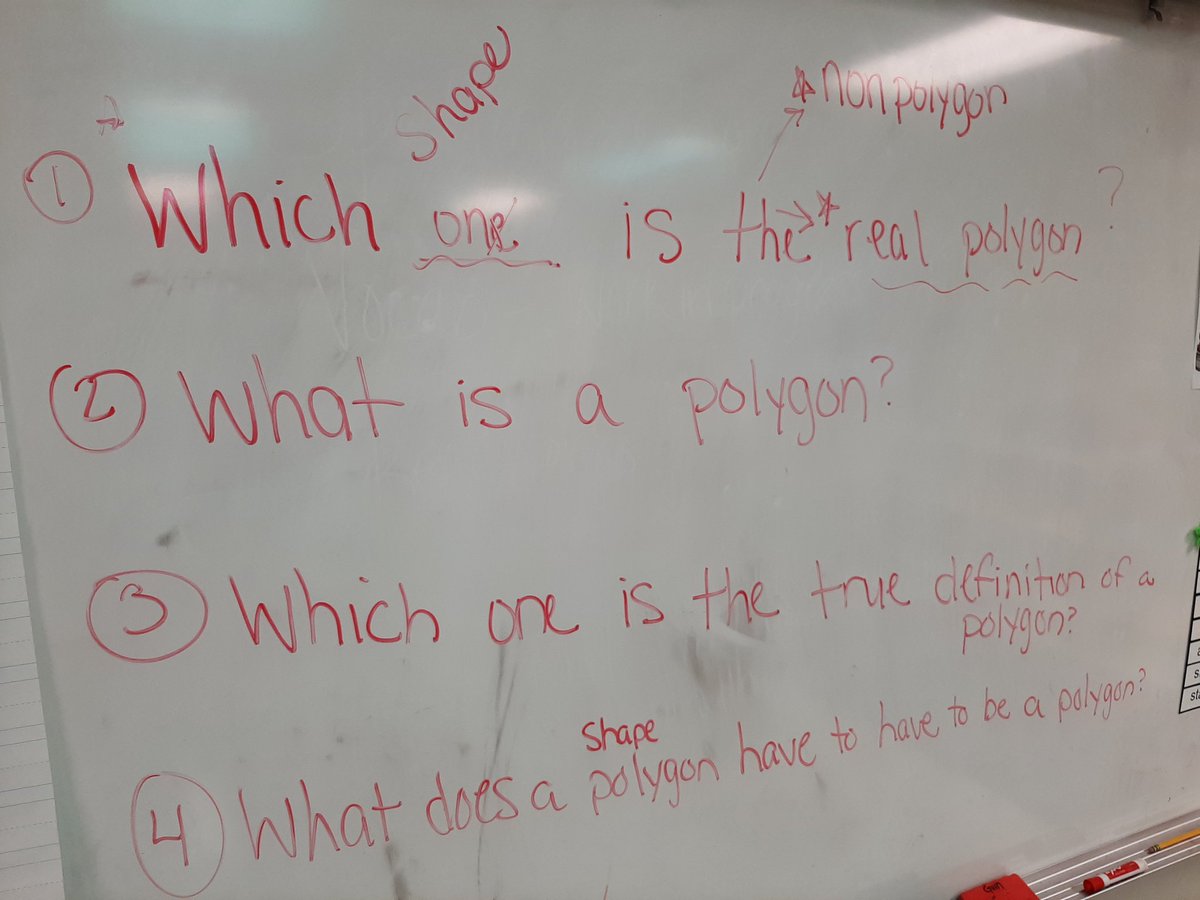 shape
*nonpolygon
① Which one is the *real polygon?
② What is a polygon?
③ Which one is the true definition of a
polygon?
shape
④ What does a polygon have to have to be a polygon?